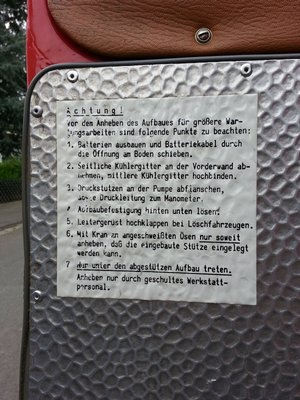 Achtung!
Vor dem Anheben des Aufbaues für größere War-
tungsarbeiten sind folgende Punkte zu beachten:
1. Batterien ausbauen und Batteriekabel durch
die Öffnung am Boden schieben.
2. Seitliche Kühlergitter an der Vorderwand ab-
nehmen, mittlere Kühlergitter hochbinden.
3. Druckstutzen an der Pumpe abflanschen,
sowie Druckleitung zum Manometer.
4 Aufbaubefestigung hinten unten lösen!
5. Leitergerüst hochklappen bei Löschfahrzeugen.
6. Mit Kran an angeschweißten Ösen nur soweit
anheben, daß die eingebaute Stütze eingelegt
werden kann.
7 Nur unter den abgestützen Aufbau treten.
Anheben nur durch geschultes Werkstatt-
personal.